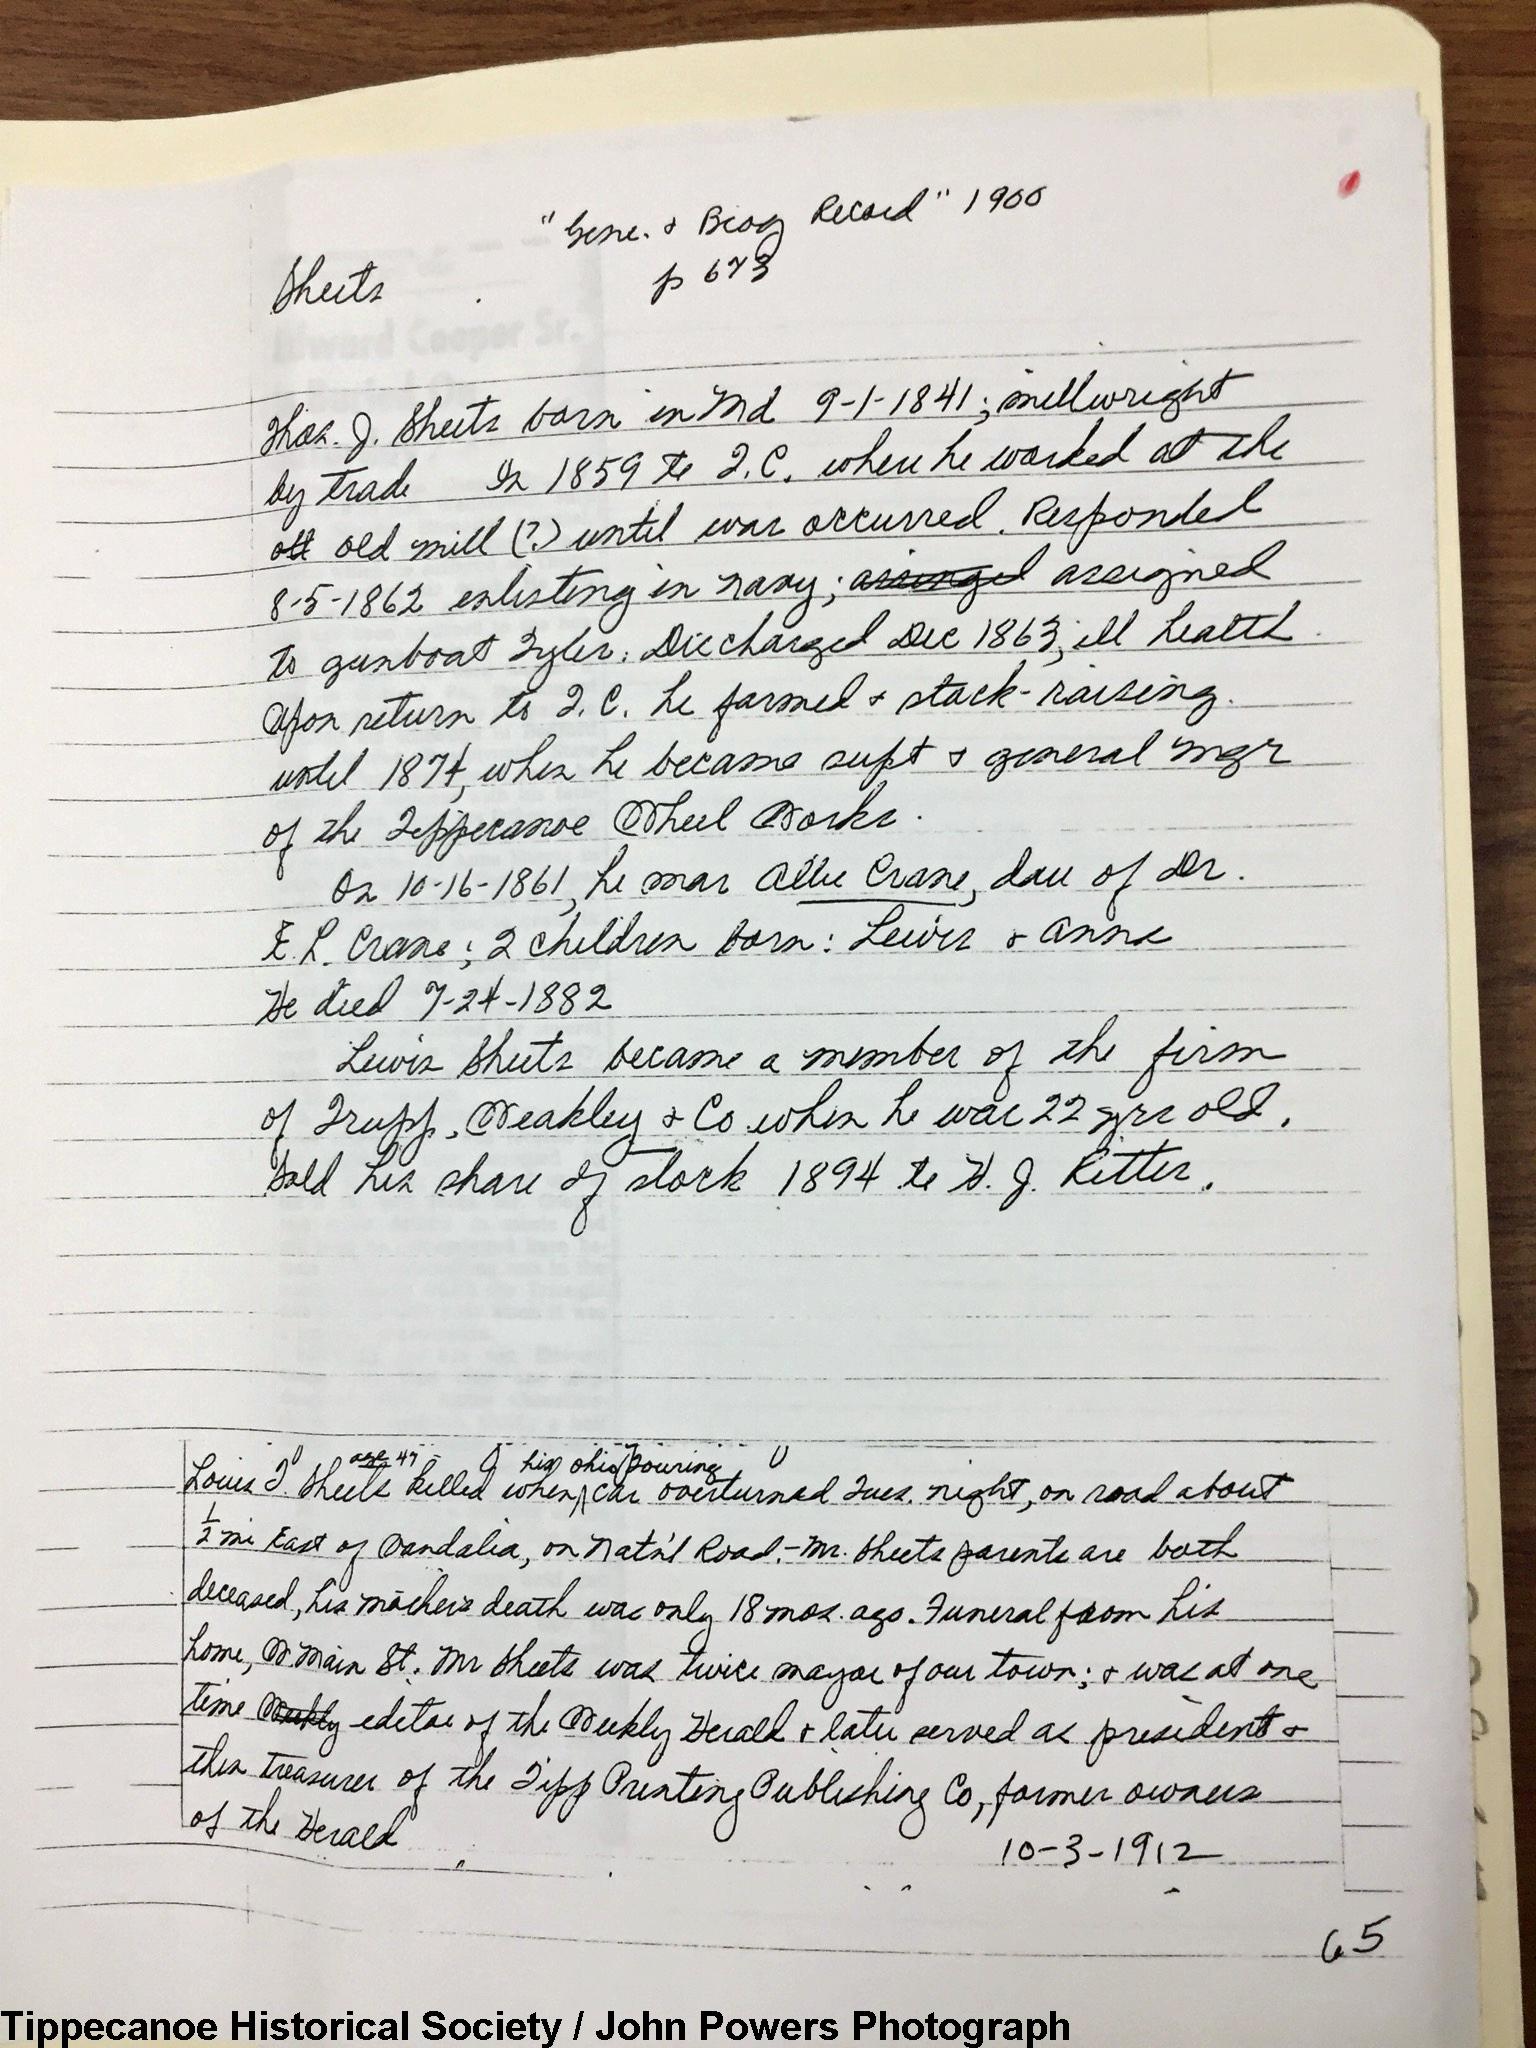 "Gene. & Biog Record" 1900
Sheets
p 673
Thos. J. Sheets born in Md 9-1-1841; millwright
by trade In 1859 to T.C. where he worked at the
old mill (?) until war occurred. Responded
8-5-1862 enlisting in navy; assigned
to gunboat Tyler. Discharged Dec 1863, ill health
Upon return to T.C. he farmed & stock-raising.
until 1874, when he became supt & general mgr
of the Tippecanoe Wheel Works.
On 10-16-1861, he mar Allie Crane, dau of Dr.
E. L. Crane; 2 children born: Lewis & Anna
He died 7-24-1882
Lewis Sheets became a member of the firm
of Trupp, Weakley & Co when he was 22 yrs old.
Sold his share of stock 1894 to H. J. Ritter.
age 47 his Ohio Touring
Louis T. Sheets killed when car overturned Tues. night, on road about
1/2 mi East of Vandalia, on Nat'nl Road. - Mr. Sheets parents are both
deceased, his mother's death was only 18 mos. ago. Funeral from his
home, W. Main St. Mr Sheets was twice mayor of our town; & was at one
time Weekly editor of the Weekly Herald & later served as president &
then treasurer of the Tipp Printing Publishing Co, former owners
of the Herald
10-3-1912
65
Tippecanoe Historical Society / John Powers Photograph